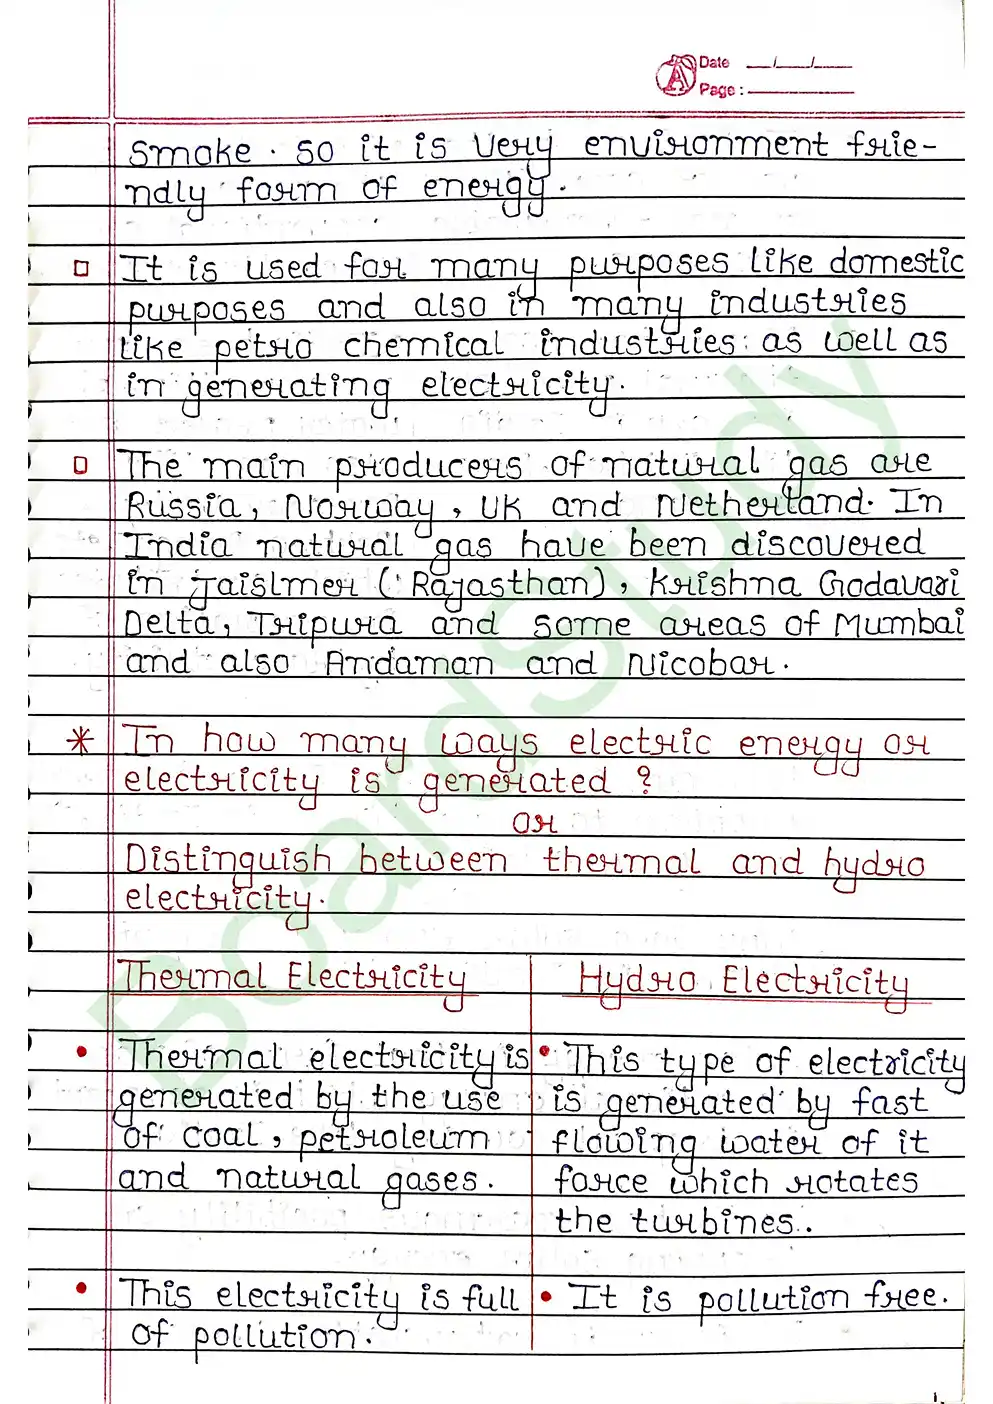 Date __/__/__
Page :
smoke. so it is very environment frie-
ndly form of energy.
It is used for many purposes like domestic
purposes and also in many industries
like petro chemical industries as well as
in generating electricity.
The main producers of natural gas are
Russia, Norway, UK and Netherland. In
India natural gas have been discovered
in Jaislmer (Rajasthan), Krishna Godavari
Delta, Tripura and some areas of Mumbai
and also Andaman and Nicobar.
* In how many ways electric energy or
electricity is generated ?
or
Distinguish between thermal and hydro
electricity.
Thermal Electricity
Hydro Electricity
• Thermal electricity is
generated by the use
of coal, petroleum
and natural gases.
• This type of electricity
is generated by fast
flowing water of it
force which rotates
the turbines..
• This electricity is full
of pollution.
• It is pollution free.
BoardStudy